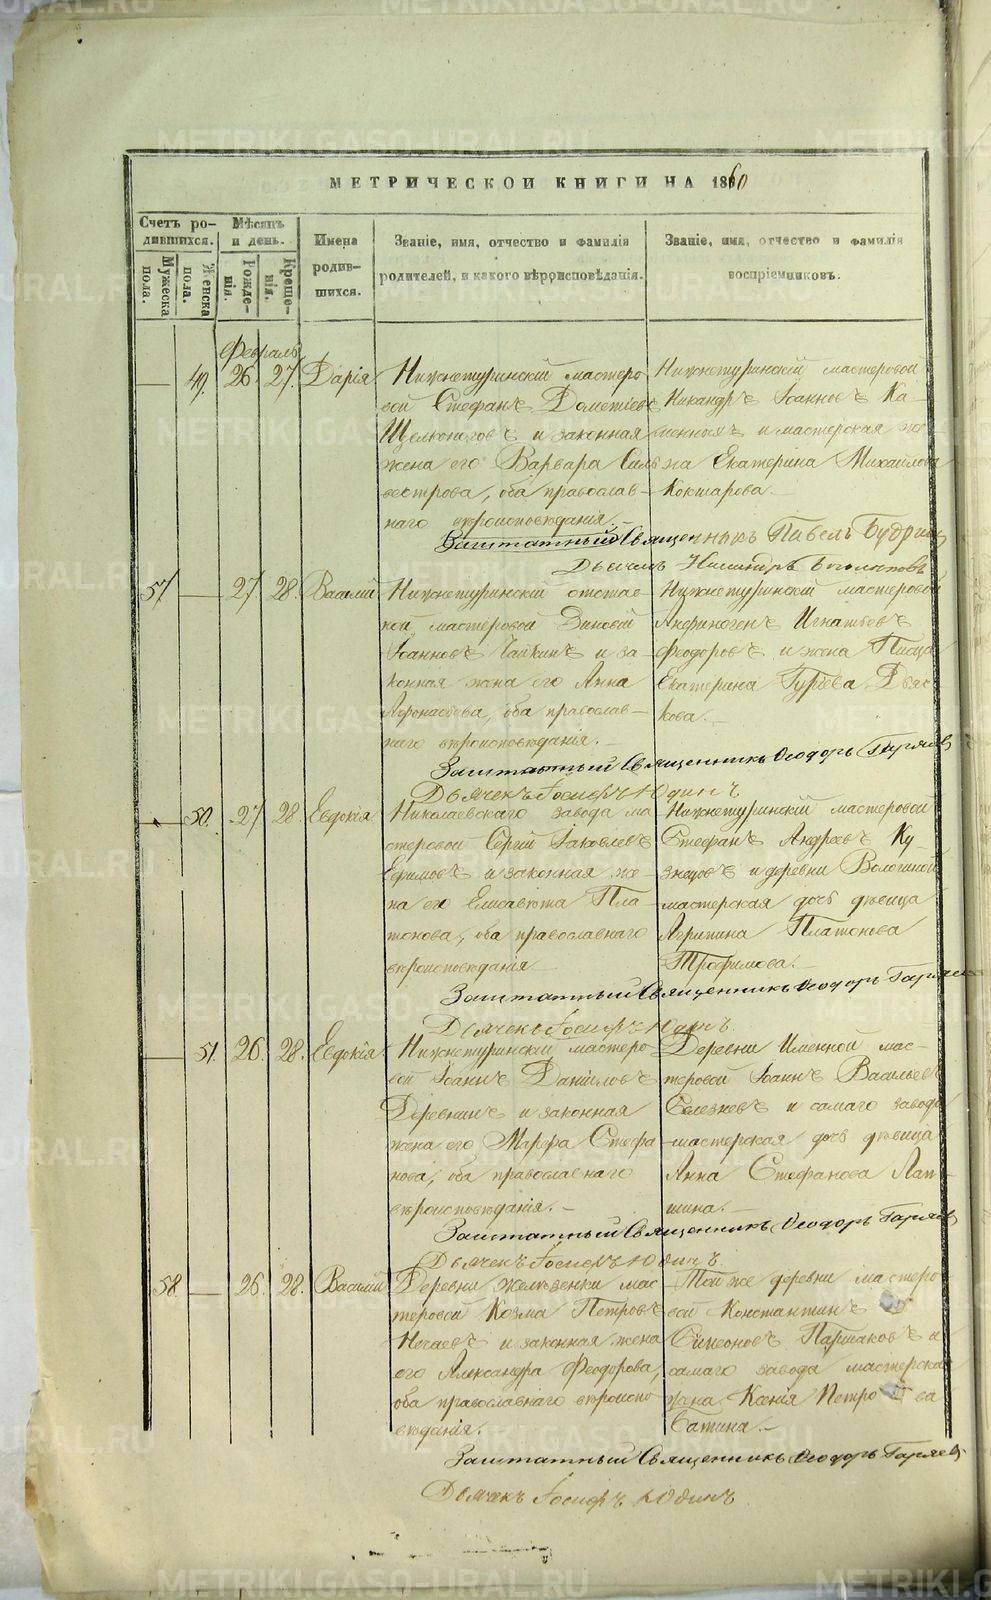 МЕТРИЧЕСКОЙ КНИГИ НА 1860
Счетъ ро-
дившихся.
Мужеска
пола.
Женска
пола.
Мѣсяцъ
и день.
Рожде-
нія.
Креще-
нія.
Имена
родив-
шихся.
Званіе, имя, отчество и фамилія
родителей, и какого вѣроисповѣданія.
Званіе, имя, отчество и фамилія
воспріемниковъ.
Февраль
49. 26. 27. Дарія
Нижнетуринскій мастеро-
вой Стефанъ Дометіевъ
Щелконоговъ и законная
жена его Варвара Силь-
вестрова, оба православ-
наго вѣроисповѣданія.
Нижнетуринскій мастеровой
Никандръ Іоанновъ Ка-
менныхъ и мастерская же-
на Екатерина Михайлова
Кокшарова.
Заштатный Священникъ Павелъ
Дьячекъ
57 27 28. Василій
Нижнетуринскій отстав-
ной мастеровой Зиновій
Іоанновъ Чайкинъ и за-
конная жена его Анна
Афонасьева, оба православ-
наго вѣроисповѣданія.
Нижнетуринскій мастеровой
Анфиногенъ Игнатьевъ
Феодоровъ и жена Писца
Екатерина Гурьева Дьяч-
кова.
Заштатный Священникъ Ѳеодоръ Гаряев
Дьячекъ Іосифъ Юдинъ
50. 27 28 Евдокія
Николаевскаго завода ма-
стеровой Сергій Іаковлевъ
Ефимовъ и законная же-
на его Елисавета Пла-
тонова, оба православнаго
вѣроисповѣданія
Нижнетуринскій мастеровой
Стефанъ Андреевъ Ку-
знецовъ и деревни Вологиной
мастерская дочь дѣвица
Агрипина Платонова
Трофимова.
Заштатный Священникъ Ѳеодоръ Гаряев
Дьячекъ Іосифъ Юдинъ.
51. 26. 28. Евдокія
Нижнетуринскій мастеро-
вой Іоаннъ Даниловъ
Деревнинъ и законная
жена его Марѳа Стефа-
нова, оба православнаго
вѣроисповѣданія.
Деревни Именной мас-
теровой Іоаннъ Васильевъ
Селезневъ и самаго завода
мастерская дочь дѣвица
Анна Стефанова Лап-
шина.
Заштатный Священникъ Ѳеодоръ Гаряев
Дьячекъ Іосифъ Юдинъ
58. 26. 28. Василій
Деревни Желѣзенки мас-
теровой Козма Петровъ
Нечаевъ и законная жена
его Александра Феодорова,
оба православнаго вѣроиспо-
вѣданія.
Той же деревни мастеро-
вой Константинъ
Симеоновъ Паршаковъ и
самаго завода мастерская
жена Ксенія Петрова
Батина.
Заштатный Священникъ Ѳеодоръ Гаряев
Дьячекъ Іосифъ Юдинъ